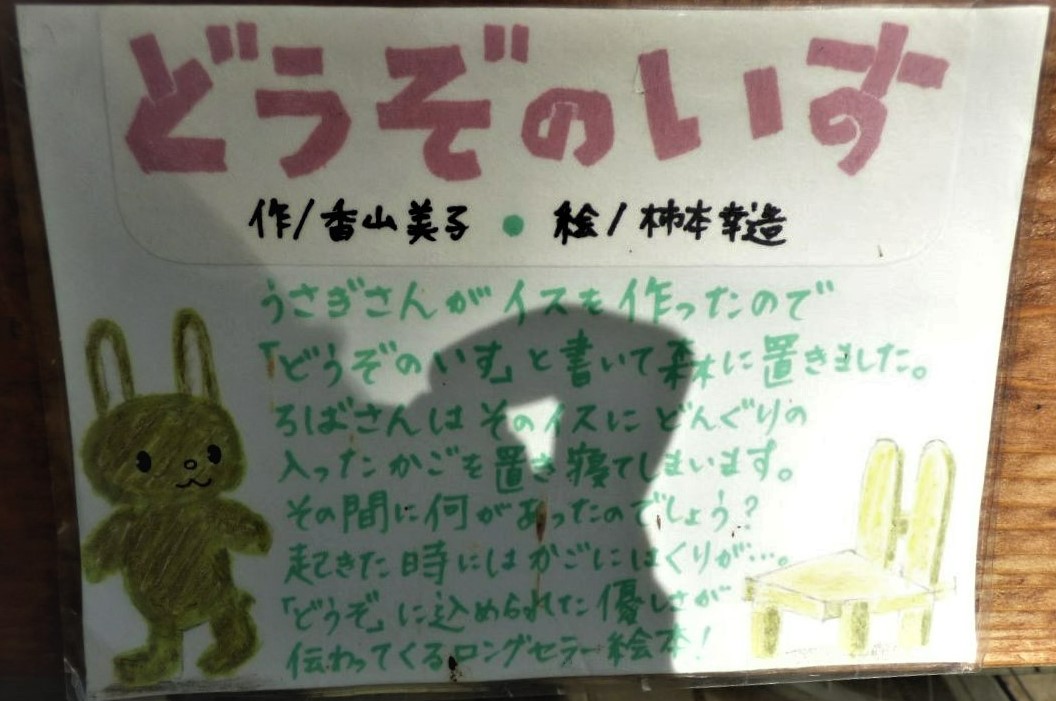 どうぞのいす
作/香山美子 ● 絵/柿本幸造
うさぎさんがイスを作ったので
「どうぞのいす」と書いて森に置きました。
ろばさんはそのイスにどんぐりの
入ったかごを置き寝てしまいます。
その間に何があったのでしょう?
起きた時にはかごにはくりが…。
「どうぞ」に込められた優しさが
伝わってくるロングセラー絵本!